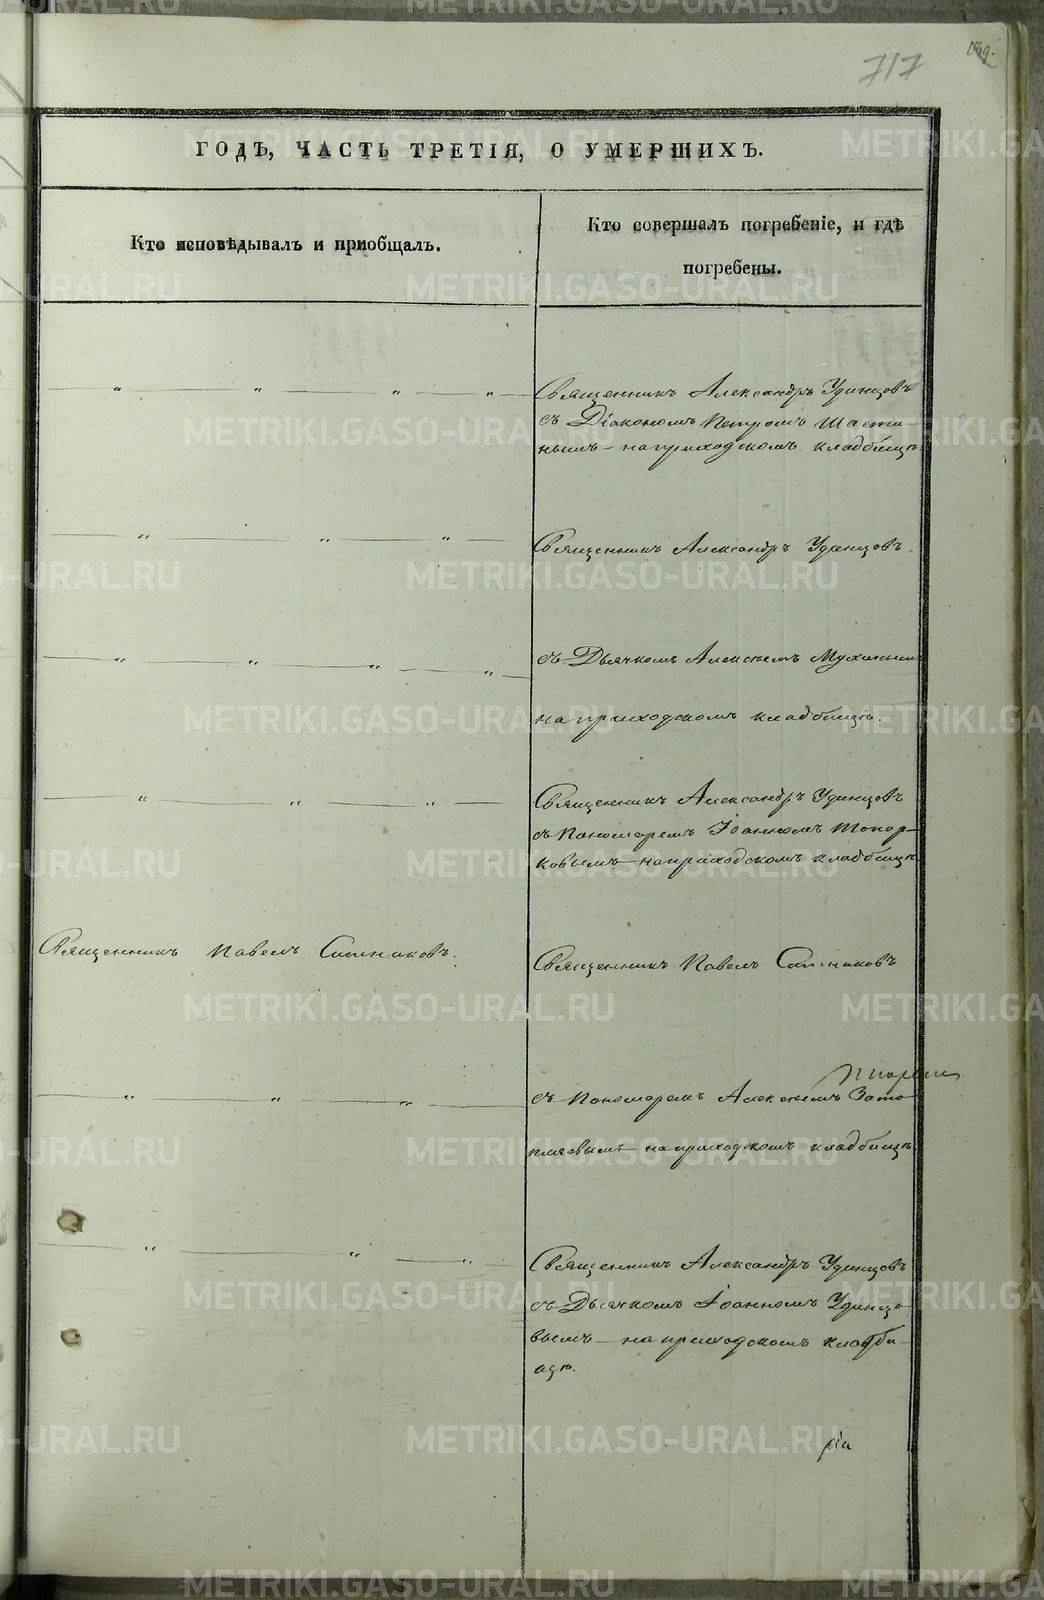 717
ГОДЪ, ЧАСТЬ ТРЕТІЯ, О УМЕРШИХЪ.
Кто исповѣдывалъ и приобщалъ.
Кто совершалъ погребеніе, и гдѣ
погребены.
Священникъ Александръ Удинцовъ
съ Діакономъ Петромъ Шасти-
нымъ на приходскомъ кладбищѣ.
Священникъ Александръ Удинцовъ
съ Дьячкомъ Алексѣемъ Мухинымъ
на приходскомъ кладбищѣ.
Священникъ Александръ Удинцовъ
съ Пономаремъ Іоанномъ Топор-
ковымъ на приходскомъ кладбищѣ.
Священникъ Павелъ Ситниковъ.
Священникъ Павелъ Ситниковъ
съ Пономаремъ Алексѣемъ Зато
пляевымъ на приходскомъ кладбищѣ.
Священникъ Александръ Удинцовъ
съ Дьячкомъ Іоанномъ Удинцо-
вымъ на приходскомъ кладби-
щѣ.
рія
METRIKI.GASO-URAL.RU